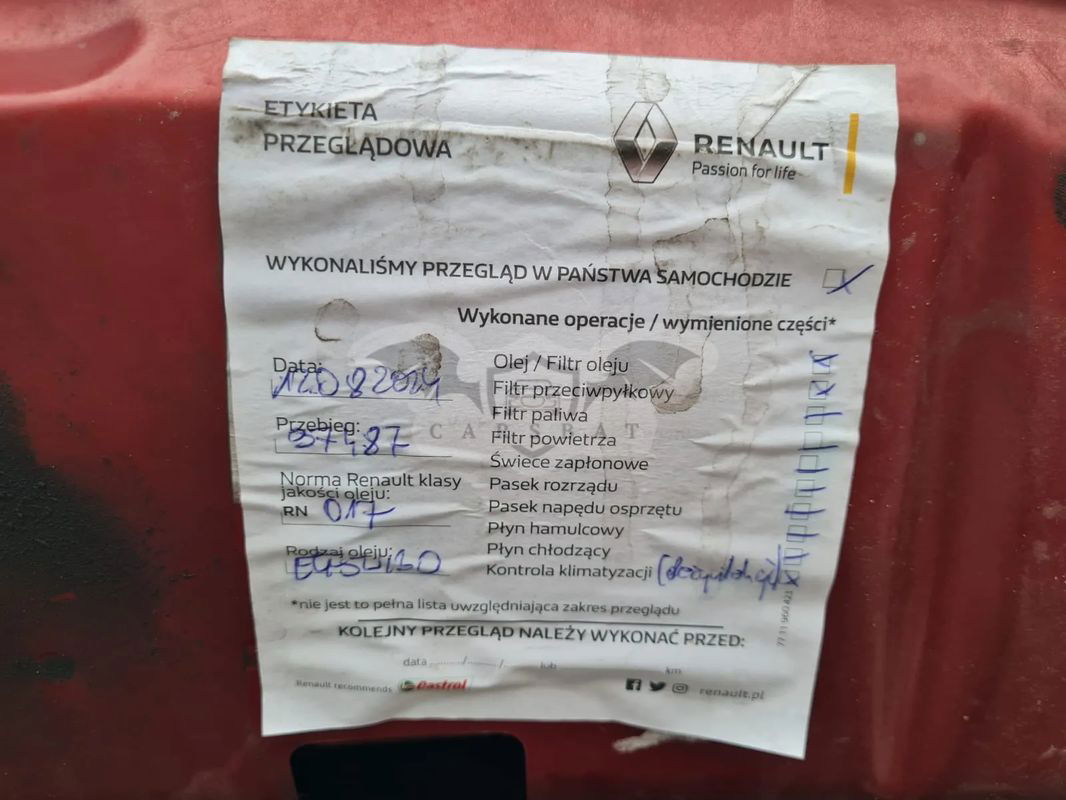 ETYKIETA
PRZEGLĄDOWA
RENAULT
Passion for life
WYKONALIŚMY PRZEGLĄD W PAŃSTWA SAMOCHODZIE
Wykonane operacje / wymienione części*
Data:
Przebieg:
37487
Norma Renault klasy
jakości oleju:
RN 017
Rodzaj oleju:
Olej / Filtr oleju
Filtr przeciwpyłkowy
Filtr paliwa
Filtr powietrza
Świece zapłonowe
Pasek rozrządu
Pasek napędu osprzętu
Płyn hamulcowy
Płyn chłodzący
Kontrola klimatyzacji
CARSBAT
77 11 960 423
*nie jest to pełna lista uwzględniająca zakres przeglądu
KOLEJNY PRZEGLĄD NALEŻY WYKONAĆ PRZED:
data ......../......../ lub km
Renault recommends Castrol
renault.pl